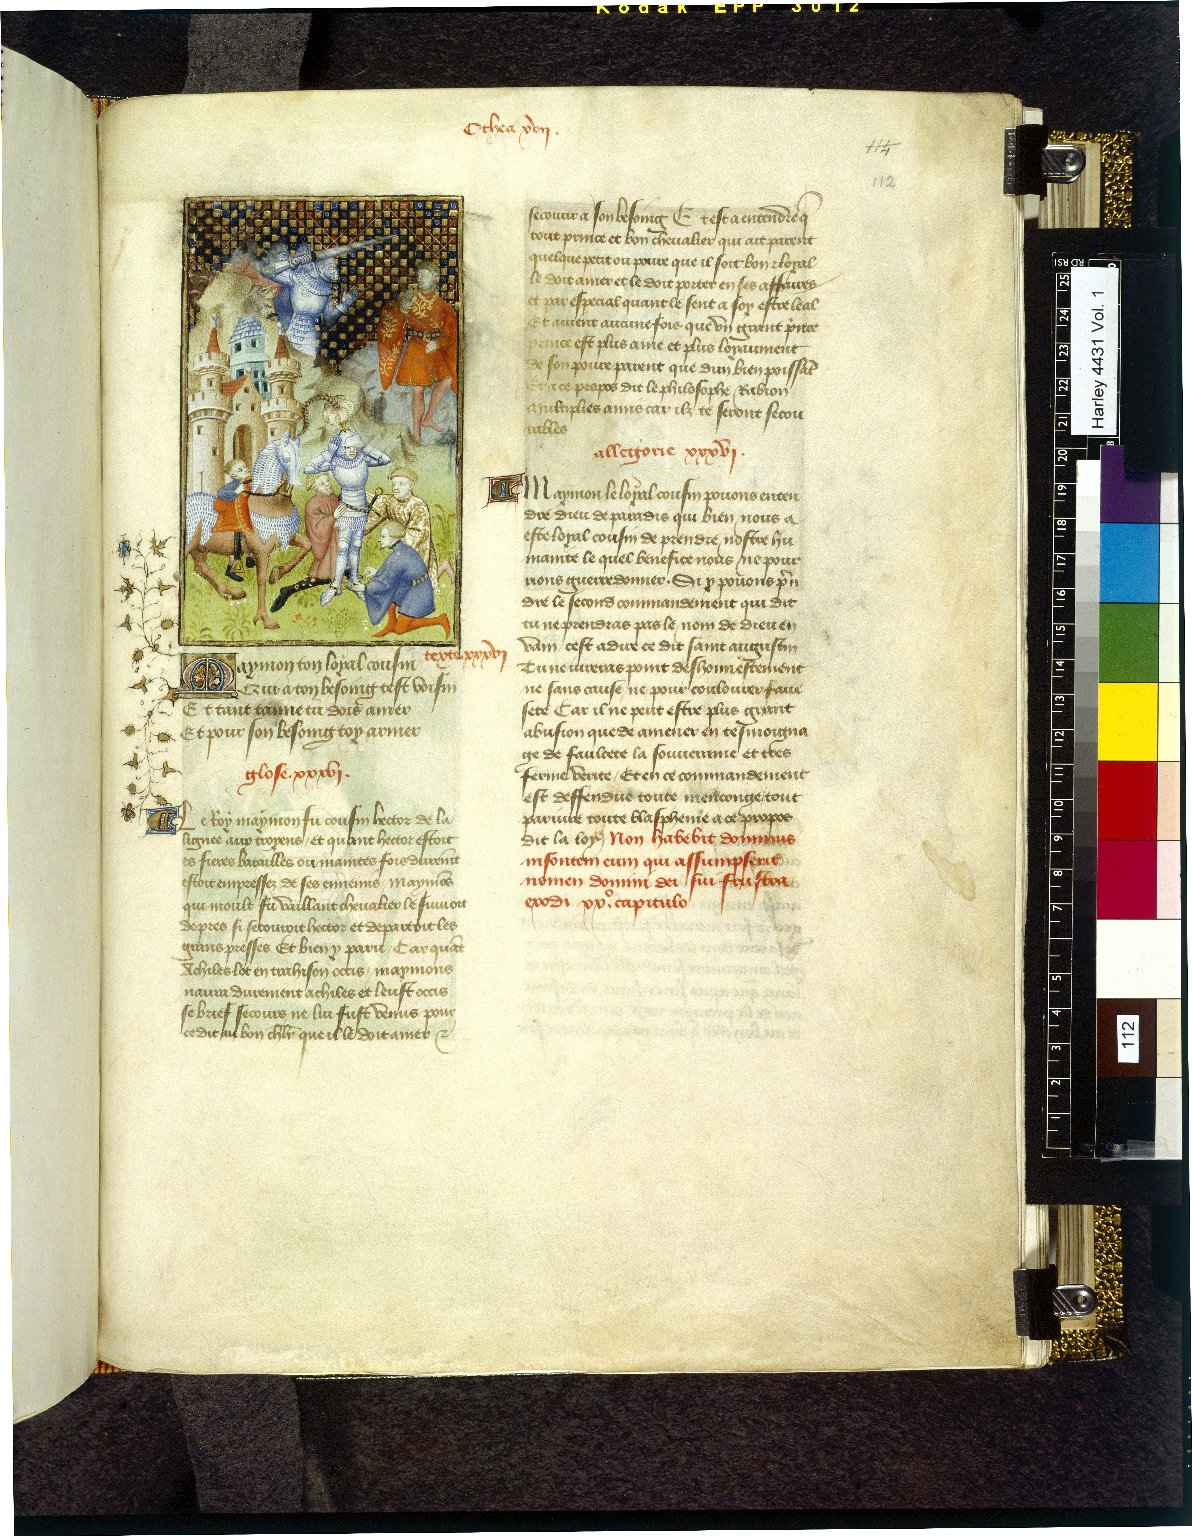 Kodak EPP 3012
Othea xvii.
114
112
texte xxxvi
Maymon ton loyal cousin
Qui a ton besoing test voisin
Et tant tamme tu dois amer
Et pour son besoing toy armer
glose. xxxvi.
Le Roy maymon fu cousin hector de la
lignee aux troyens / et quant hector estoit
es fieres batailles ou maintes fois durement
estoit empressez de ses ennemis / maymons
qui moult fu vaillant chevalier le suivoit
de pres si secouroit hector et departoit les
grans presses Et bien y paru / Car quãt
Achiles lot en trahison occis / maymons
navra durement achiles et leust occis
se brief secours ne lui fust venus pour
ce dit au bon chlr que il le doit amer &
secourir a son besoing Et est a entendre q̃
tout prince et bon chevalier qui ait parent
quelque petit ou povre que il soit bon & loyal
le doit amer et le doit porter en ses affaires
et par especial quant le sent a soy estre leal
Et avient aucune fois que un grant prĩce
prince est plus ame et plus loyaument
de son povre parent que dun bien poissãt
Et a ce propos dit le philosophe Rabion
Multiplies amis car ilz te seront secou
rables
allegorie xxxvi.
Maymon le loyal cousin pouons enten
dre dieu de paradis qui bien nous a
este loyal cousin de prendre nostre hu
manite le quel benefice nous ne pour
rions guerredonner. Si y pouons pñ
dre le second commandement qui dit
tu ne prendras pas le nom de dieu en
vain / cest a dire ce dit saint augustin
Tu ne jureras point deshonnestement
ne sans cause ne pour coulourer faus
sete Car il ne peut estre plus grant
abusion que de amener en tesmoigna
ge de faulcete la souveraine et tres
ferme verite / Et en ce commandement
est deffendue toute mencong̃e tout
pariure toute blaspheme a ce propos
dit la loy / Non habebit dominus
insontem eum qui assumpserit
nomen domini dei sui frustra
exodi xx.º capitulo
Harley 4431 Vol. 1
112